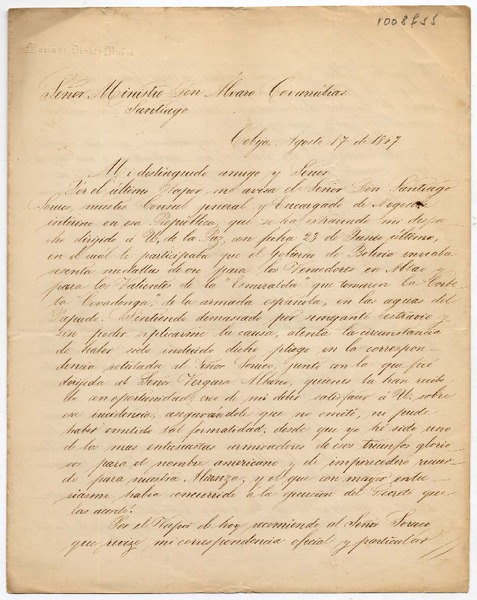 1008755
Mariano Donato Muñoz
Señor Ministro Don Álvaro Covarrubias
Santiago
Cobija, Agosto 17 de 1867
Mi distinguido amigo y Señor
Por el último Vapor, me avisa el Señor Don Santiago
Soruco, nuestro Consul jeneral y Encargado de Negocios
interino en esa República, que se ha estraviado mi despa-
cho dirijido á U. de la Paz, con fecha 23 de Junio último,
en el cual le participaba que el Gobierno de Bolivia enviaba
medallas de oro para los Vencedores en Abtao y
para los Valientes de la "Esmeralda" que tomaron la Corbe-
ta "Covadonga," de la armada española, en las aguas del
Papudo. Sintiendo demasiado por semejante estravio y
sin poder esplicarme la causa, atenta la circunstancia
de haber sido incluido dicho pliego en la correspon-
dencia rotulada al Señor Soruco, junto con la que fué
dirijida al Señor Vergara Albano, quienes la han recibi-
do con oportunidad, creo de mi deber satisfacer á U. sobre
esa incidencia, asegurandole que no omití, ni pude
haber omitido tal formalidad, desde que yo hé sido uno
de los mas entusiastas admiradores de esos triunfos glorio-
sos para el nombre americano y de imperecedero recuer-
do para nuestra Alianza, y el que con mayor entu-
siasmo habia concurrido á la jeneración del Decreto que
las acordó.
Por el Vapor de hoy recomiendo al Señor Soruco
que revise mi correspondencia oficial y particular